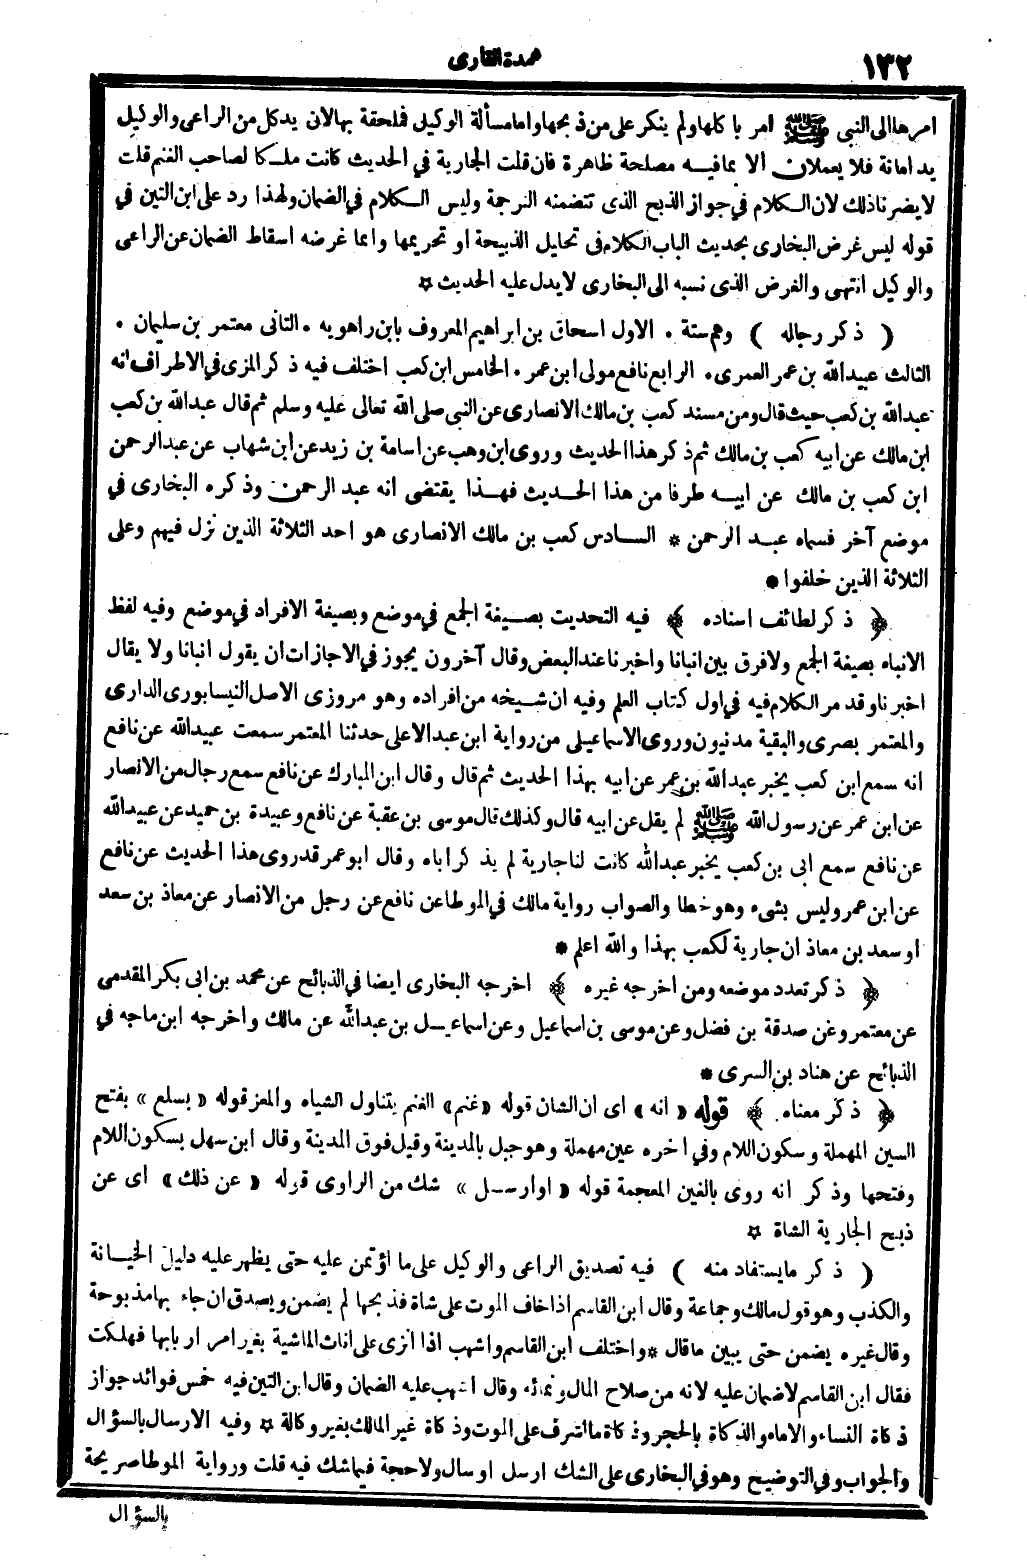 ١٣٢
عمدة القارى
امرها الى النبى ﷺ امر باكلها ولم ينكر على من ذبحها واما مسألة الوكيل فملحقة بها لان يد كل من الراعى والوكيل
يد امانة فلا يعملان الا بما فيه مصلحة ظاهرة فان قلت الجارية في الحديث كانت ملكا لصاحب الغنم قلت
لا يضرنا ذلك لان الكلام في جواز الذبح الذى تتضمنه الترجمة وليس الكلام في الضمان ولهذا رد على ابن التين في
قوله ليس غرض البخارى بحديث الباب الكلام فى تحليل الذبيحة او تحريمها وانما غرضه اسقاط الضمان عن الراعى
والوكيل انتهى والغرض الذى نسبه الى البخارى لا يدل عليه الحديث ☆
( ذكر رجاله ) وهم ستة . الاول اسحاق بن ابراهيم المعروف بابن راهويه . الثانى معتمر بن سليمان .
الثالث عبيد الله بن عمر العمرى . الرابع نافع مولى ابن عمر . الخامس ابن كعب اختلف فيه ذكر المزى في الاطراف انه
عبد الله بن كعب حيث قال ومن مسند كعب بن مالك الانصارى عن النبى صلى الله تعالى عليه وسلم ثم قال عبد الله بن كعب
ابن مالك عن ابيه كعب بن مالك ثم ذكر هذا الحديث وروى ابن وهب عن اسامة بن زيد عن ابن شهاب عن عبد الرحمن
ابن كعب بن مالك عن ابيه طرفا من هذا الحديث فهذا يقتضى انه عبد الرحمن وذكره البخارى في
موضع آخر فسماه عبد الرحمن * السادس كعب بن مالك الانصارى هو احد الثلاثة الذين نزل فيهم وعلى
الثلاثة الذين خلفوا *
﴿ ذكر لطائف اسناده ﴾ فيه التحديث بصيغة الجمع في موضع وبصيغة الافراد في موضع وفيه لفظ
الانباء بصيغة الجمع ولا فرق بين انبانا واخبرنا عند البعض وقال آخرون يجوز في الاجازات ان يقول انبانا ولا يقال
اخبرنا وقد مر الكلام فيه في اول كتاب العلم وفيه ان شيخه من افراده وهو مروزى الاصل النيسابورى الدارى
والمعتمر بصرى والبقية مدنيون وروى الاسماعيلى من رواية ابن عبد الاعلى حدثنا المعتمر سمعت عبيد الله عن نافع
انه سمع ابن كعب يخبر عبد الله بن عمر عن ابيه بهذا الحديث ثم قال وقال ابن المبارك عن نافع سمع رجال من الانصار
عن ابن عمر عن رسول الله ﷺ لم يقل عن ابيه قال وكذلك قال موسى بن عقبة عن نافع وعبيدة بن حميد عن عبيد الله
عن نافع سمع ابى بن كعب يخبر عبد الله كانت لنا جارية لم يذكر اباه وقال ابو عمر قد روى هذا الحديث عن نافع
عن ابن عمر وليس بشىء وهو خطا والصواب رواية مالك في الموطا عن نافع عن رجل من الانصار عن معاذ بن سعد
او سعد بن معاذ ان جارية لكعب بهذا والله اعلم *
﴿ ذكر تعدد موضعه ومن اخرجه غيره ﴾ اخرجه البخارى ايضا في الذبائح عن محمد بن ابى بكر المقدمى
عن معتمر وعن صدقة بن فضل وعن موسى بن اسماعيل وعن اسماعيل بن عبد الله عن مالك واخرجه ابن ماجه في
الذبائح عن هناد بن السرى *
﴿ ذكر معناه ﴾ قوله « انه » اى ان الشان قوله «غنم» الغنم يتناول الشياه والمعز قوله « بسلع » بفتح
السين المهملة وسكون اللام وفي اخره عين مهملة وهو جبل بالمدينة وقيل فوق المدينة وقال ابن سهل بسكون اللام
وفتحها وذكر انه روى بالغين المعجمة قوله « او ارسل » شك من الراوى قوله « عن ذلك » اى عن
ذبح الجارية الشاة ☆
( ذكر ما يستفاد منه ) فيه تصديق الراعى والوكيل على ما اؤتمن عليه حتى يظهر عليه دليل الخيانة
والكذب وهو قول مالك وجماعة وقال ابن القاسم اذا خاف الموت على شاة فذبحها لم يضمن ويصدق ان جاء بها مذبوحة
وقال غيره يضمن حتى يبين ما قال * واختلف ابن القاسم واشهب اذا انزى على اناث الماشية بغير امر اربابها فهلكت
فقال ابن القاسم لا ضمان عليه لانه من صلاح المال ونمائه وقال اشهب عليه الضمان وقال ابن التين فيه خمس فوائد جواز
ذكاة النساء والاماء والذكاة بالحجر وذكاة ما اشرف على الموت وذكاة غير المالك بغير وكالة ☆ وفيه الارسال بالسؤال
والجواب وفي التوضيح وهو في البخارى على الشك ارسل او سال ولا حجة فيما شك فيه قلت ورواية الموطا صريحة
بالسؤال